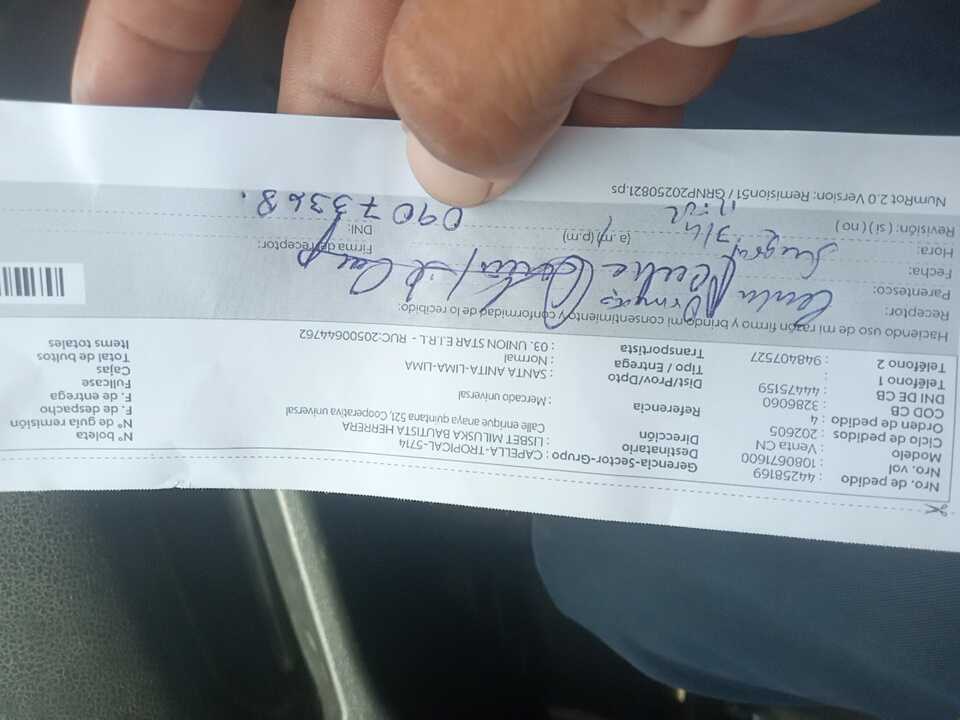 Nro. de pedido : 44258169 Gerencia-Sector-Grupo : CAPELLA-TROPICAL-5714
Nro. vol : 1080671600 Destinatario : LISBET MILUSKA BAUTISTA HERRERA N° boleta
Modelo : Venta CN Dirección Calle enrique anaya quintana 521. Cooperativa universal N° de guía de remisión
Ciclo de pedidos : 202605 F. de despacho
Orden de pedido : 4 Referencia : Mercado universal F. de entrega
COD CB 3286060 Fullcase
DNI DE CB : 44475159 Dist/Prov/Dpto : SANTA ANITA-LIMA-LIMA Cajas
Teléfono 1 : Tipo / Entrega : Normal Total de bultos
Teléfono 2 : 948407527 Transportista : 03. UNION STAR E.I.R.L. - RUC:20500644762 Items totales
Haciendo uso de mi razón firmo y brindo mi consentimiento y conformidad de lo recibido:
Receptor:
Parentesco:
Fecha: Firma de receptor:
Hora: (a.m) (p.m) DNI: 09073368.
Revisión: ( si ) ( no )
NumRot 2.0 Version: Remision51 / GRNP20250821.ps